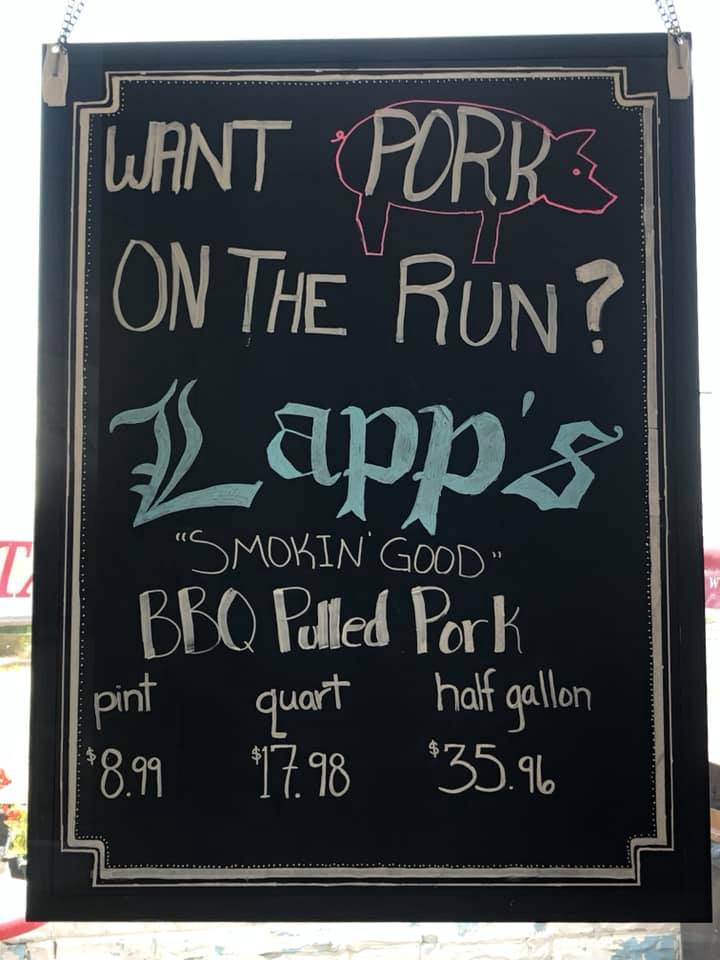 WANT PORK
ON THE RUN?
Lapp's
"SMOKIN' GOOD"
BBQ Pulled Pork
pint quart half gallon
$8.99 $17.98 $35.96